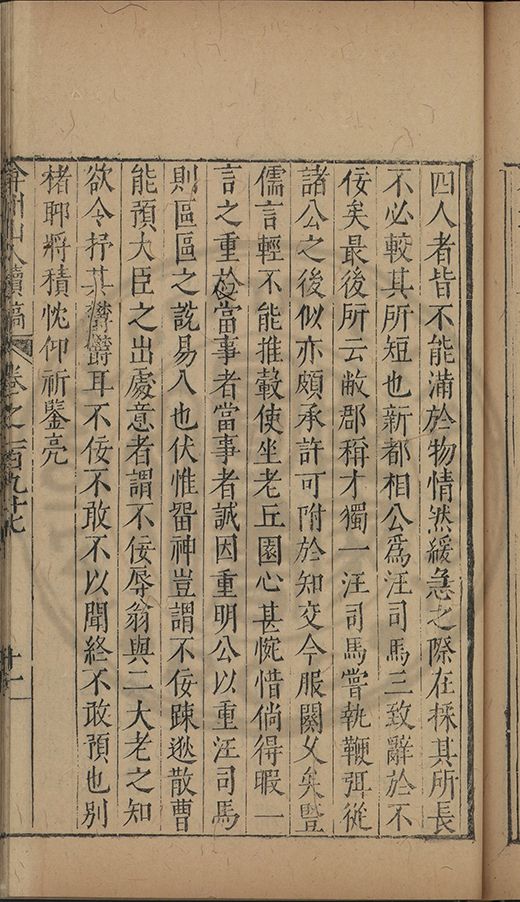 四人者皆不能滿於物情然緩急之際在採其所長
不必較其所短也新都相公爲汪司馬三致辭於不
佞矣最後所云敝郡稱才獨一汪司馬嘗執鞭弭從
諸公之後似亦頗承許可附於知交今服闋久矣豎
儒言輕不能推轂使坐老丘園心甚惋惜倘得暇一
言之重於當事者當事者誠因重明公以重汪司馬
則區區之説易入也伏惟畱神豈謂不佞踈逖散曹
能預大臣之出處意者謂不佞辱翁與二大老之知
欲令抒其鬱鬱耳不佞不敢不以聞終不敢預也別
楮聊將積忱仰祈鑒亮
弇州山人續稿 卷之一百九十七 十一